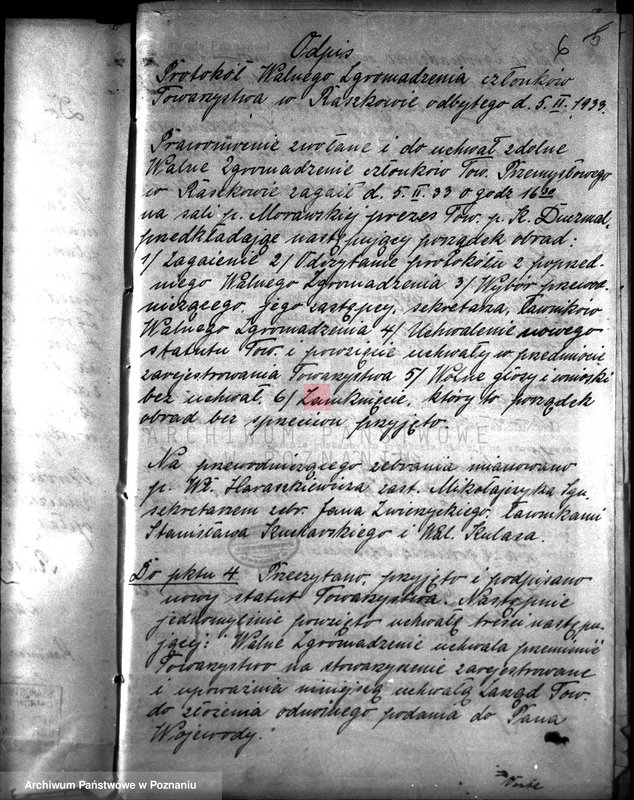 6
Odpis
Protokół Walnego Zgromadzenia członków
Towarzystwa w Raszkowie odbytego d. 5.II.1933.
Prawomocnie zwołane i do uchwał zdolne
Walne Zgromadzenie członków Tow. Przemysłowego
w Raszkowie zagaił d. 5.II.33 o godz 16⁰⁰
na sali p. Morawskiej prezes Tow. p. K.
przedkładając następujący porządek obrad:
1/ Zagajenie 2/ Odczytanie protokółu z poprzed-
niego Walnego Zgromadzenia 3/ Wybór przewod-
niczącego jego zastępcy, sekretarza, ławników
Walnego Zgromadzenia 4/ Uchwalenie nowego
statutu Tow. i powzięcie uchwały w przedmiocie
zarejestrowania Towarzystwa 5/ Wolne głosy i wnioski
bez uchwał 6/ Zamknięcie, który to porządek
obrad bez sprzeciwu przyjęto.
ARCHIWUM PAŃSTWOWE
W POZNANIU
Na przewodniczącego zebrania mianowano
p. Wł. Haraszkiewicza zast. Mikołajczyka Ign.
sekretarzem zebr. Jana Zwierzyckiego, ławnikami
Stanisława Kucharskiego i Wal. Kulasa.
Do pktu 4. Przeczytano, przyjęto i podpisano
nowy statut Towarzystwa. Następnie
jednomyślnie powzięto uchwałę treści następu-
jącej: Walne Zgromadzenie uchwala przemienić
Towarzystwo na stowarzyszenie zarejestrowane
i upoważnia niniejszą uchwałą Zarząd Tow.
do złożenia odnośnego podania do Pana
Wojewody.
Archiwum Państwowe w Poznaniu